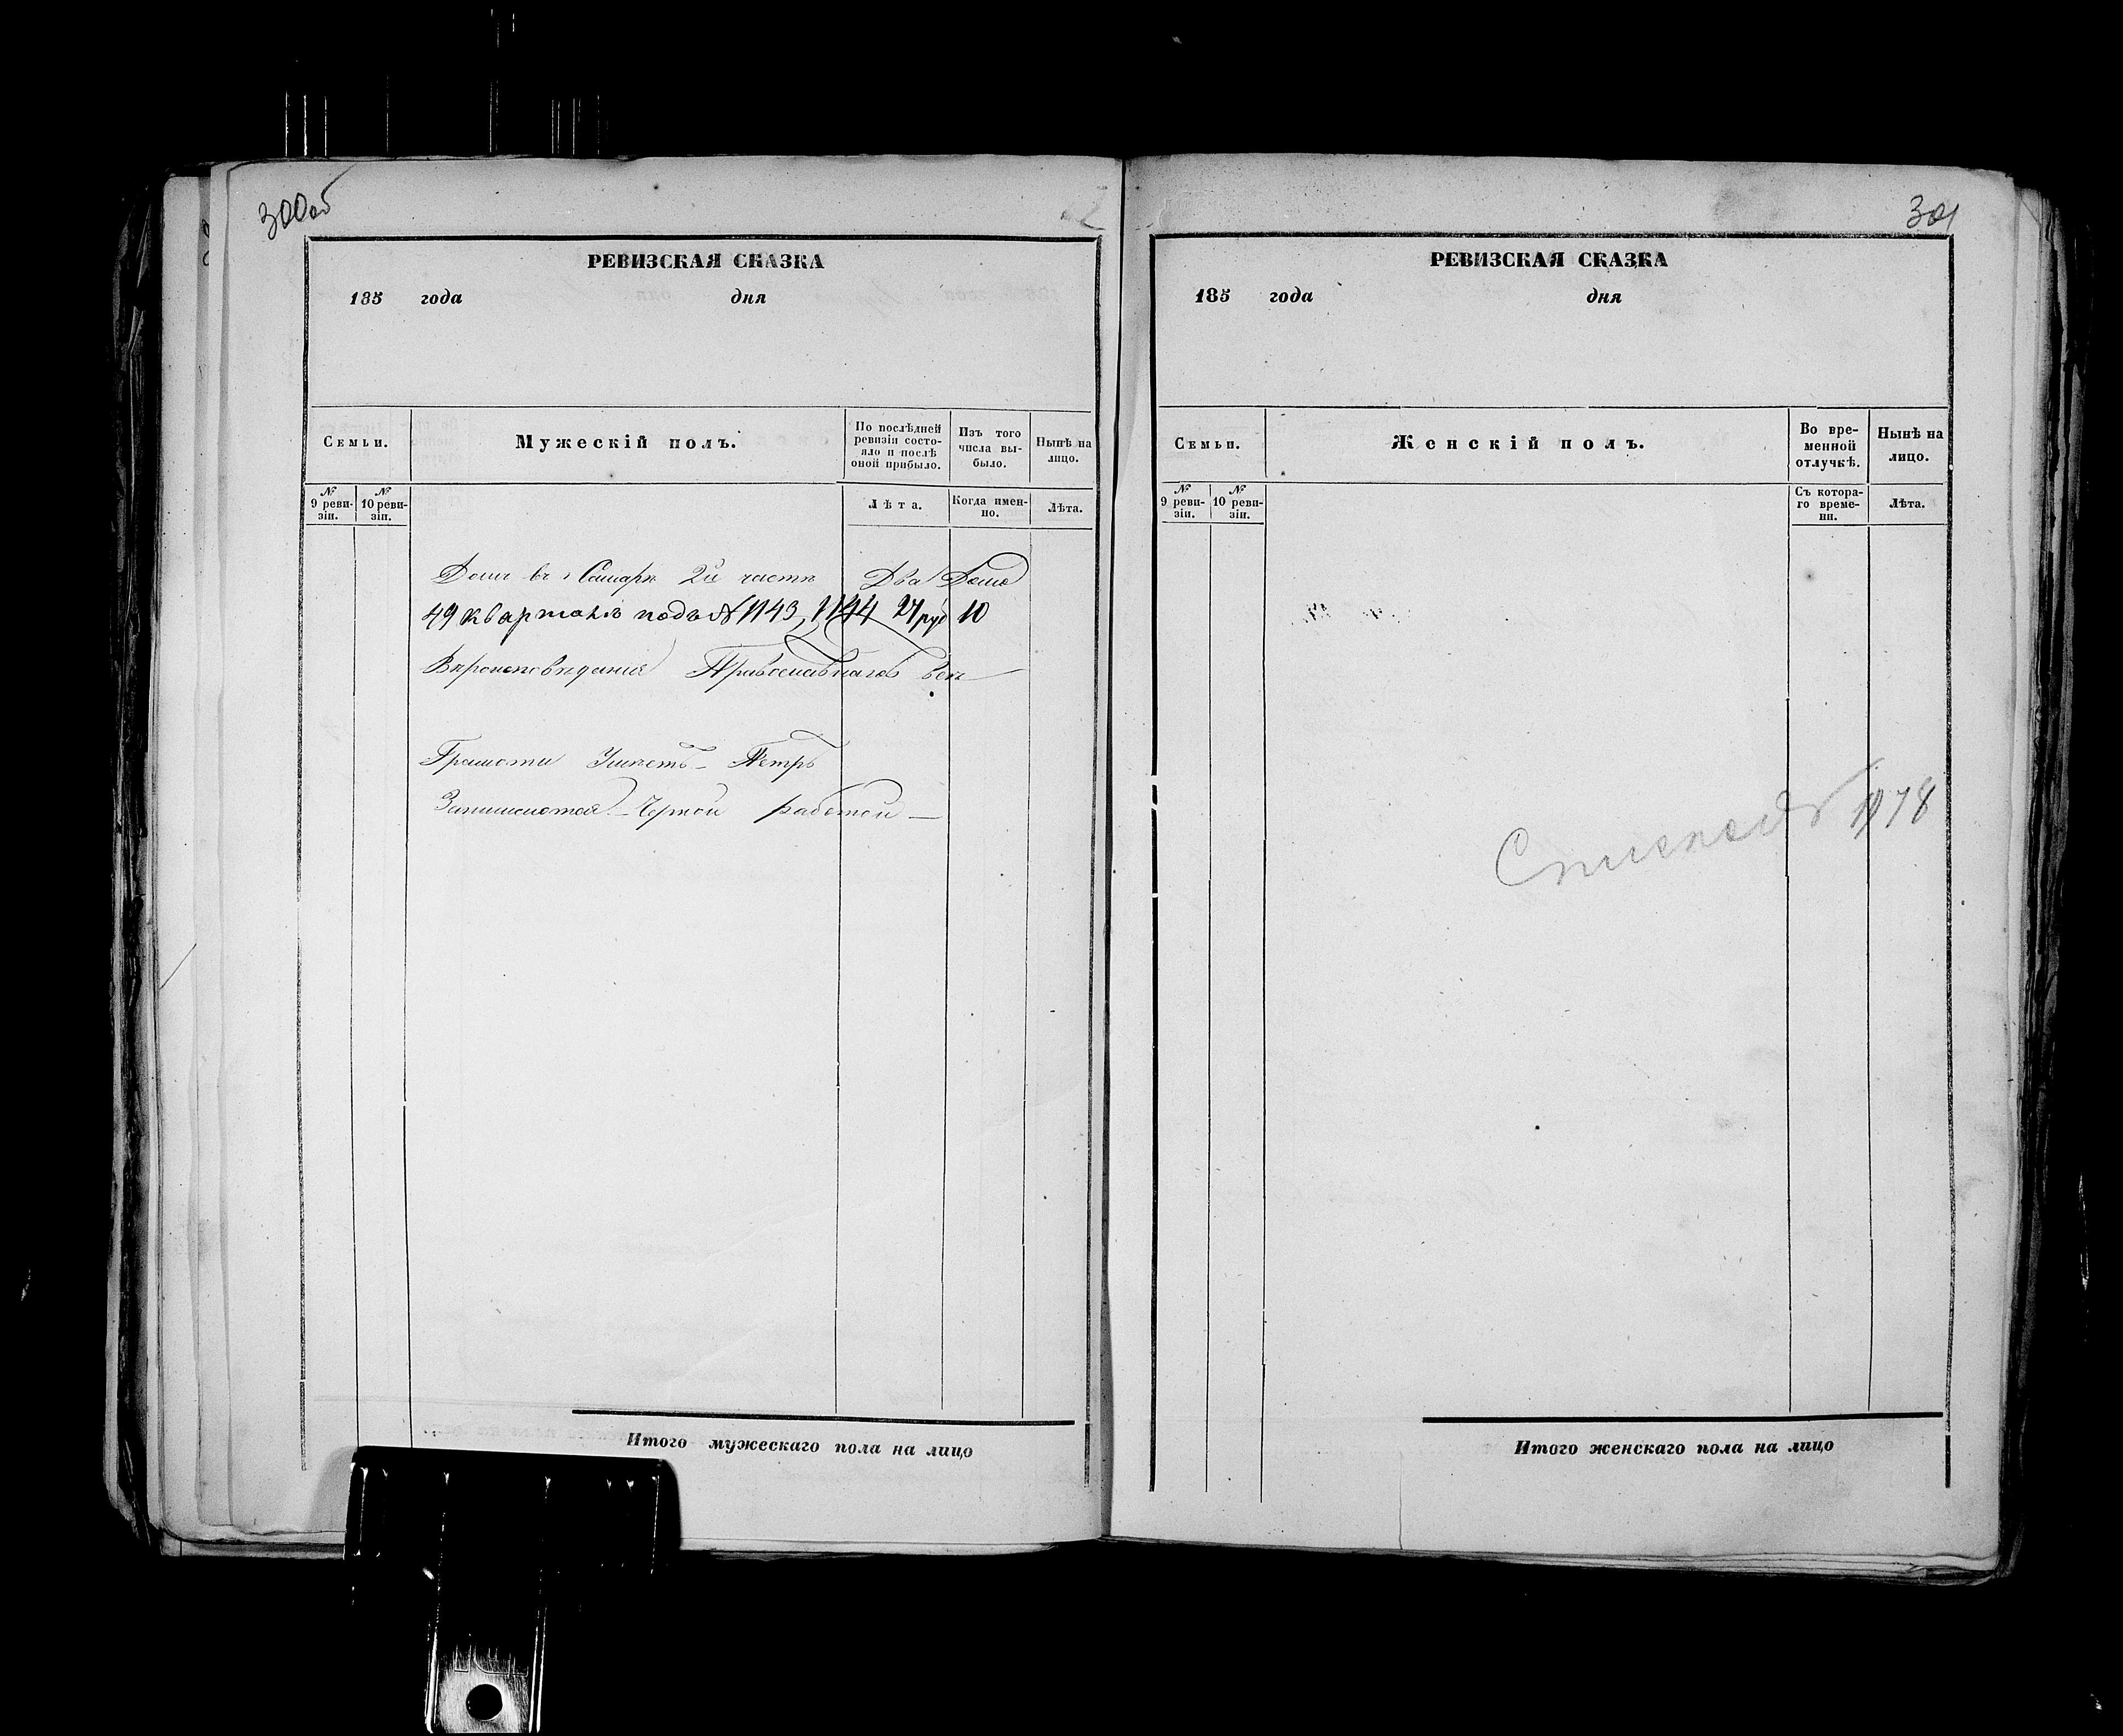 300 об
РЕВИЗСКАЯ СКАЗКА
185 года дня
Семьи.
Мужескій полъ.
По послѣдней ревизіи состо-
яло и послѣ
оной прибыло.
Изъ того
числа вы-
было.
Нынѣ на
лицо.
№
9 реви-
зіи.
№
10 реви-
зіи.
Лѣта.
Когда имен-
но.
Лѣта.
Домъ въ г Самарѣ 2й части Два Дома
49 квартале подъ № 1143, 1144 24 руб 10
Вѣроисповѣдания Православнаго всѣ
Грамоти Умѣетъ - Петръ
Занимаются - Черной работой -
Итого мужескаго пола на лицо
301
РЕВИЗСКАЯ СКАЗКА
185 года дня
Семьи.
Женскій полъ.
Во вре-
менной
отлучкѣ.
Нынѣ на
лицо.
№
9 реви-
зіи.
№
10 реви-
зіи.
Съ котора-
го време-
ни.
Лѣта.
Итого женскаго пола на лицо